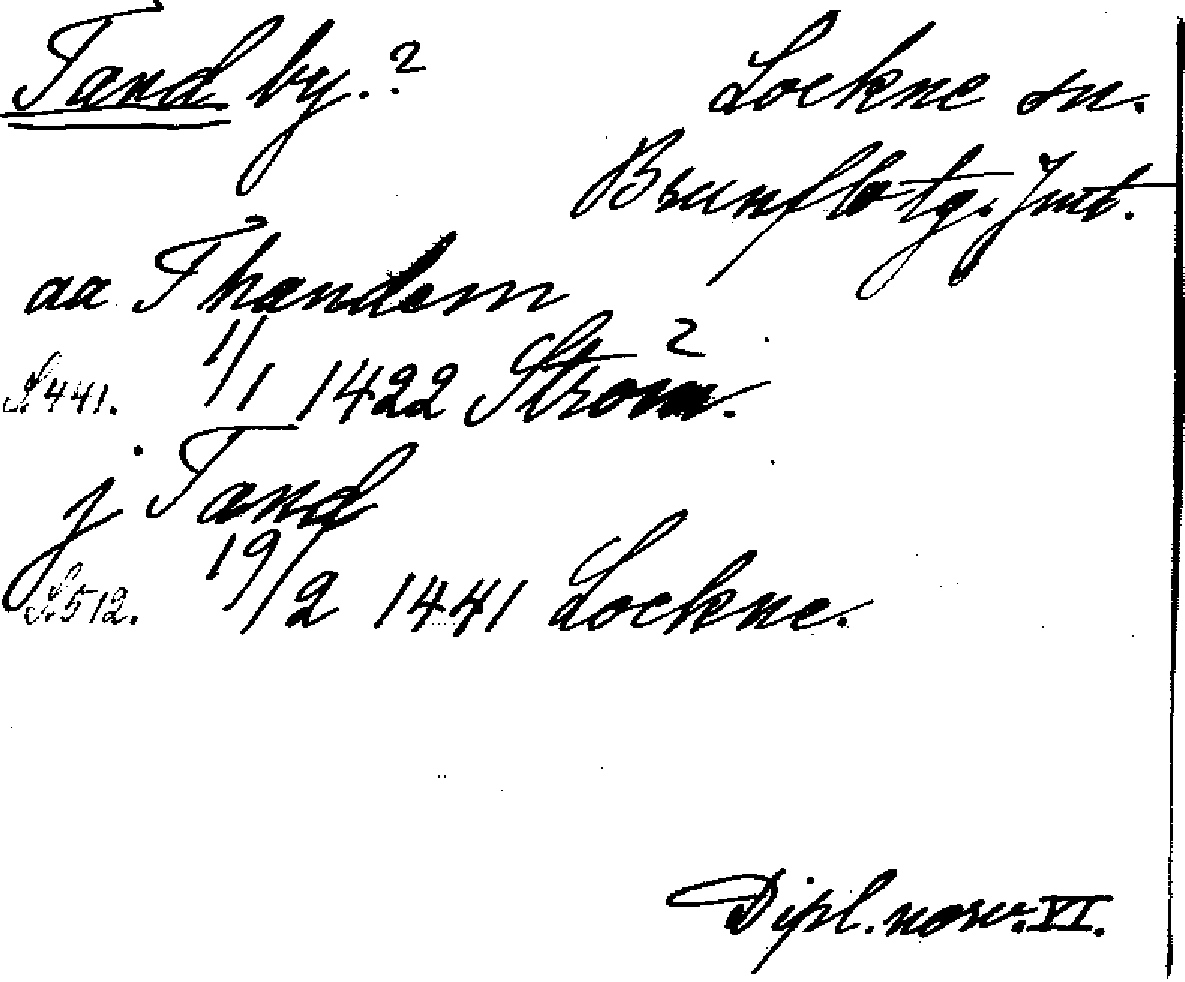 Tand by.? Lockne sn.
Brunflo tg. Jmt.
aa Thandem
S. 441. 1/1 1422 Ström. ?
j Tand
S. 512. 19/2 1441 Lockne.
Dipl. norv. VI.